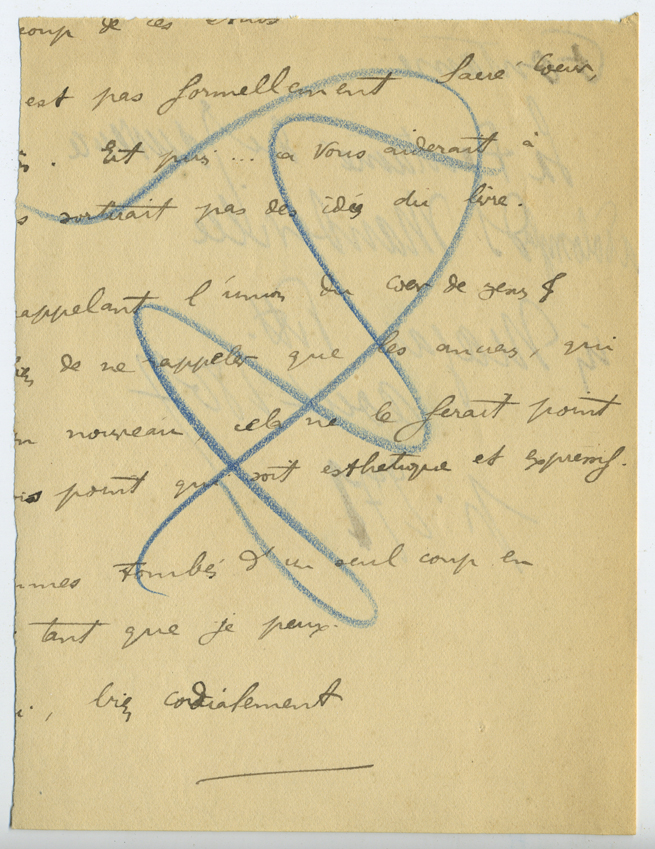 coup de ces
est pas formellement Sacré-Coeur,
. Et puis ... ça vous aiderait à
s sortirait pas des idées du livre.
appelant l'union du coeur de
de ne rappeler que les anciens, qui
n nouveau, cela ne le ferait point
is point qui soit esthétique et expressif.
mmes tombés d'un seul coup en
tant que je peux.
, bien cordialement